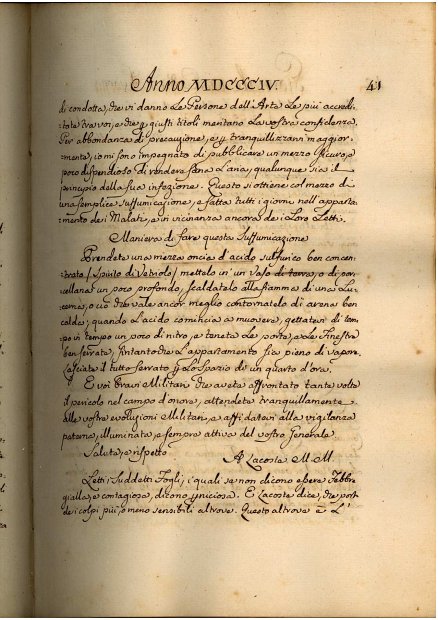 Anno MDCCCIV. 41
di condotta, che vi danno le Persone dell'Arte le più accredi-
tate tra voi, e che p giusti titoli meritano la vostra confidenza.
Per abbondanza di precauzione, e p tranquillizzarvi maggior-
mente, io mi sono impegnato di pubblicare un mezzo sicuro, e
poco dispendioso di rendere sana l'aria, qualunque sia il
principio della sua infezione. Questo si ottiene col mezzo di
una semplice suffumicazione, e fatta tutti i giorni nell'appar-
tamento dei Malati, e in vicinanza ancora dei loro Letti.
Maniera di fare questa Suffumicazione
Prendete una mezza oncia d'acido sulfurico ben concen-
trato (Spirito di Vetriolo) mettelo in un Vaso di terra, o di por-
cellana un poco profondo, scaldatelo alla fiamma di una Lu-
cerna, o ciò che vale ancor meglio contornatelo di arena ben
calda; quando l'acido comincia a muovere, gettatevi di tem-
po in tempo un poco di nitro, e tenete le porte, e le Finestre
ben serrate, fintantoche l'appartamento sia pieno di vapore,
lasciate il tutto serrato p lo spazio di un quarto d'ora.
E voi bravi Militari che avete affrontato tante volte
il pericolo nel campo d'onore, attendete tranquillamente
alle vostre evoluzioni Militari, e affidatevi alla vigilanza
paterna, illuminata, e sempre attiva del vostro Generale
Salute, e rispetto
Lacoste M. M.
Letti i suddetti Fogli, i quali se non dicono essere Febbre
gialla, e contagiosa, dicono perniciosa. E Lacoste dice, che port
dei colpi più, o meno sensibili altrove. Questo altrove è L'